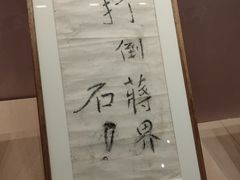 打倒
蔣界
石！